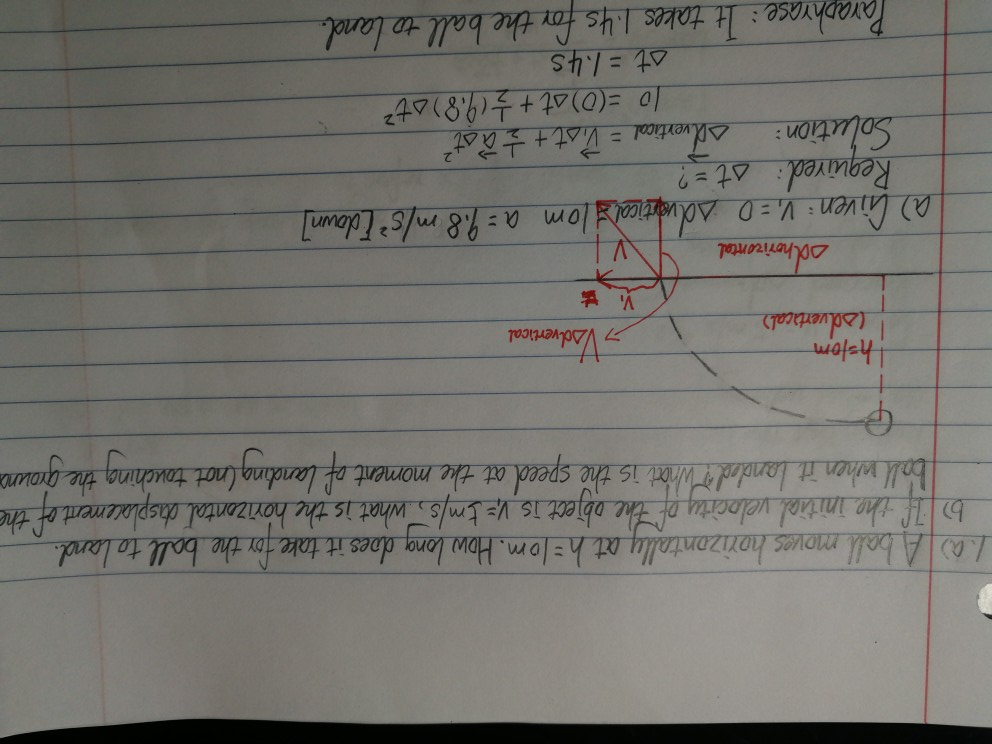 1. a) A ball moves horizontally at h=10m. How long does it take for the ball to land.
b) If the initial velocity of the object is v₁=1m/s, what is the horizontal displacement of the
ball when it landed? What is the speed at the moment of landing (not touching the ground
h=10m
(Δdvertical)
VΔdvertical
V₁
V
Δdhorizontal
a) Given: V₁=0 Δdvertical=10m a=9.8m/s² [down]
Required: Δt=?
Solution: Δd⃗vertical = V⃗₁Δt + ½a⃗Δt²
10 = (0)Δt + ½(9.8)Δt²
Δt = 1.4s
Paraphrase: It takes 1.4s for the ball to land.